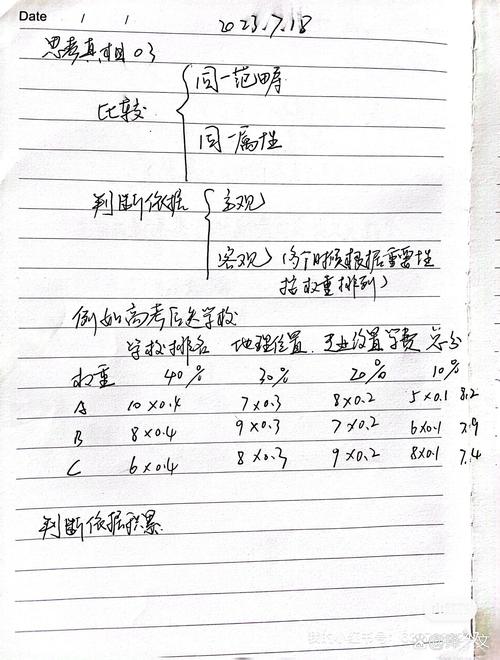 Date / /
2023.7.18
思考真相03
比较
同一范畴
同一属性
判断依据
主观
客观（多个时须根据重要性
按权重排列）
例如高考后选学校
学校排名 地理位置 专业设置 学费 总分
权重 40% 30% 20% 10%
A 10×0.4 7×0.3 8×0.2 5×0.1 8.2
B 8×0.4 9×0.3 7×0.2 6×0.1 7.9
C 6×0.4 8×0.3 9×0.2 8×0.1 7.4
判断依据积累